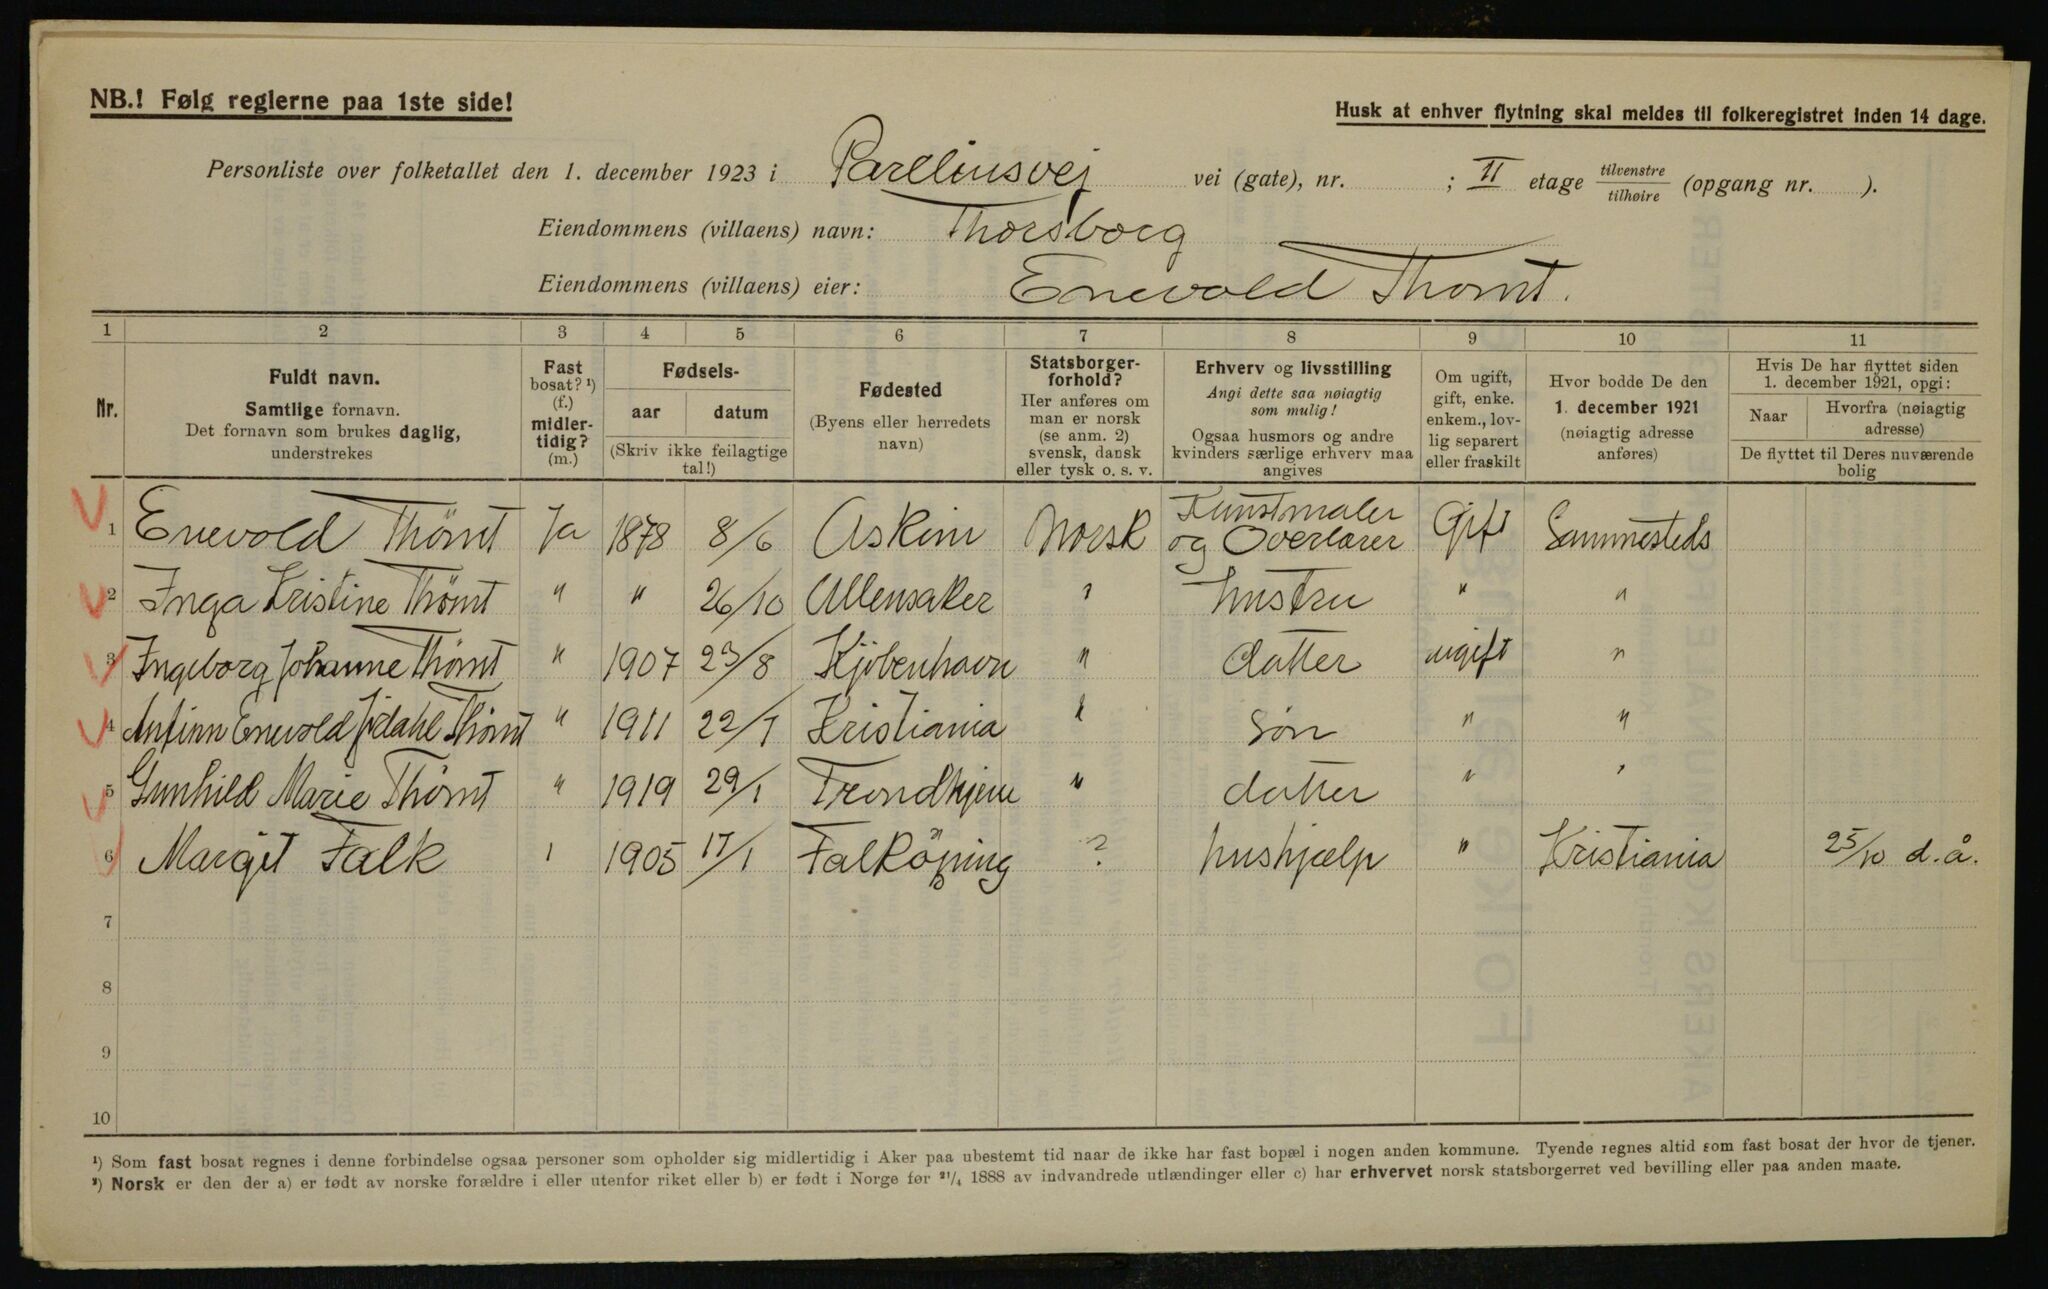 NB.! Følg reglerne paa 1ste side!
Husk at enhver flytning skal meldes til folkeregistret inden 14 dage.
Personliste over folketallet den 1. december 1923 i Parelinsvej vei (gate), nr. ; II etage tilvenstre/tilhøire (opgang nr. ).
Eiendommens (villaens) navn: Thorsborg
Eiendommens (villaens) eier: Enevold Thømt.
1 2 3 4 5 6 7 8 9 10 11
Nr.
Fuldt navn.
Samtlige fornavn.
Det fornavn som brukes daglig,
understrekes
Fast
bosat? ¹)
(f.)
midler-
tidig?
(m.)
Fødsels-
aar datum
(Skriv ikke feilagtige
tal!)
Fødested
(Byens eller herredets
navn)
Statsborger-
forhold?
Her anføres om
man er norsk
(se anm. 2)
svensk, dansk
eller tysk o. s. v.
Erhverv og livsstilling
Angi dette saa nøiagtig
som mulig!
Ogsaa husmors og andre
kvinders særlige erhverv maa
angives
Om ugift,
gift, enke.
enkem., lov-
lig separert
eller fraskilt
Hvor bodde De den
1. december 1921
(nøiagtig adresse
anføres)
Hvis De har flyttet siden
1. december 1921, opgi:
Naar Hvorfra (nøiagtig
adresse)
De flyttet til Deres nuværende
bolig
1 Enevold Thømt Ja 1878 8/6 Askim Norsk Kunstmaler og Overlærer Gift Sammesteds
2 Inga Kristine Thømt " " 26/10 Ullensaker " hustru " "
3 Ingeborg Johanne Thømt " 1907 23/8 Kjøbenhavn " datter ugift "
4 Anfinn Enevold Jødahl Thømt " 1911 22/1 Kristiania " søn " "
5 Gunhild Marie Thømt " 1919 29/1 Trondhjem " datter " "
6 Margit Falk " 1905 17/1 Falköping ? hushjælp " Kristiania 25/10 d.å.
7
8
9
10
¹) Som fast bosat regnes i denne forbindelse ogsaa personer som opholder sig midlertidig i Aker paa ubestemt tid naar de ikke har fast bopæl i nogen anden kommune. Tyende regnes altid som fast bosat der hvor de tjener.
²) Norsk er den der a) er født av norske forældre i eller utenfor riket eller b) er født i Norge før 21/4 1888 av indvandrede utlændinger eller c) har erhvervet norsk statsborgerret ved bevilling eller paa anden maate.